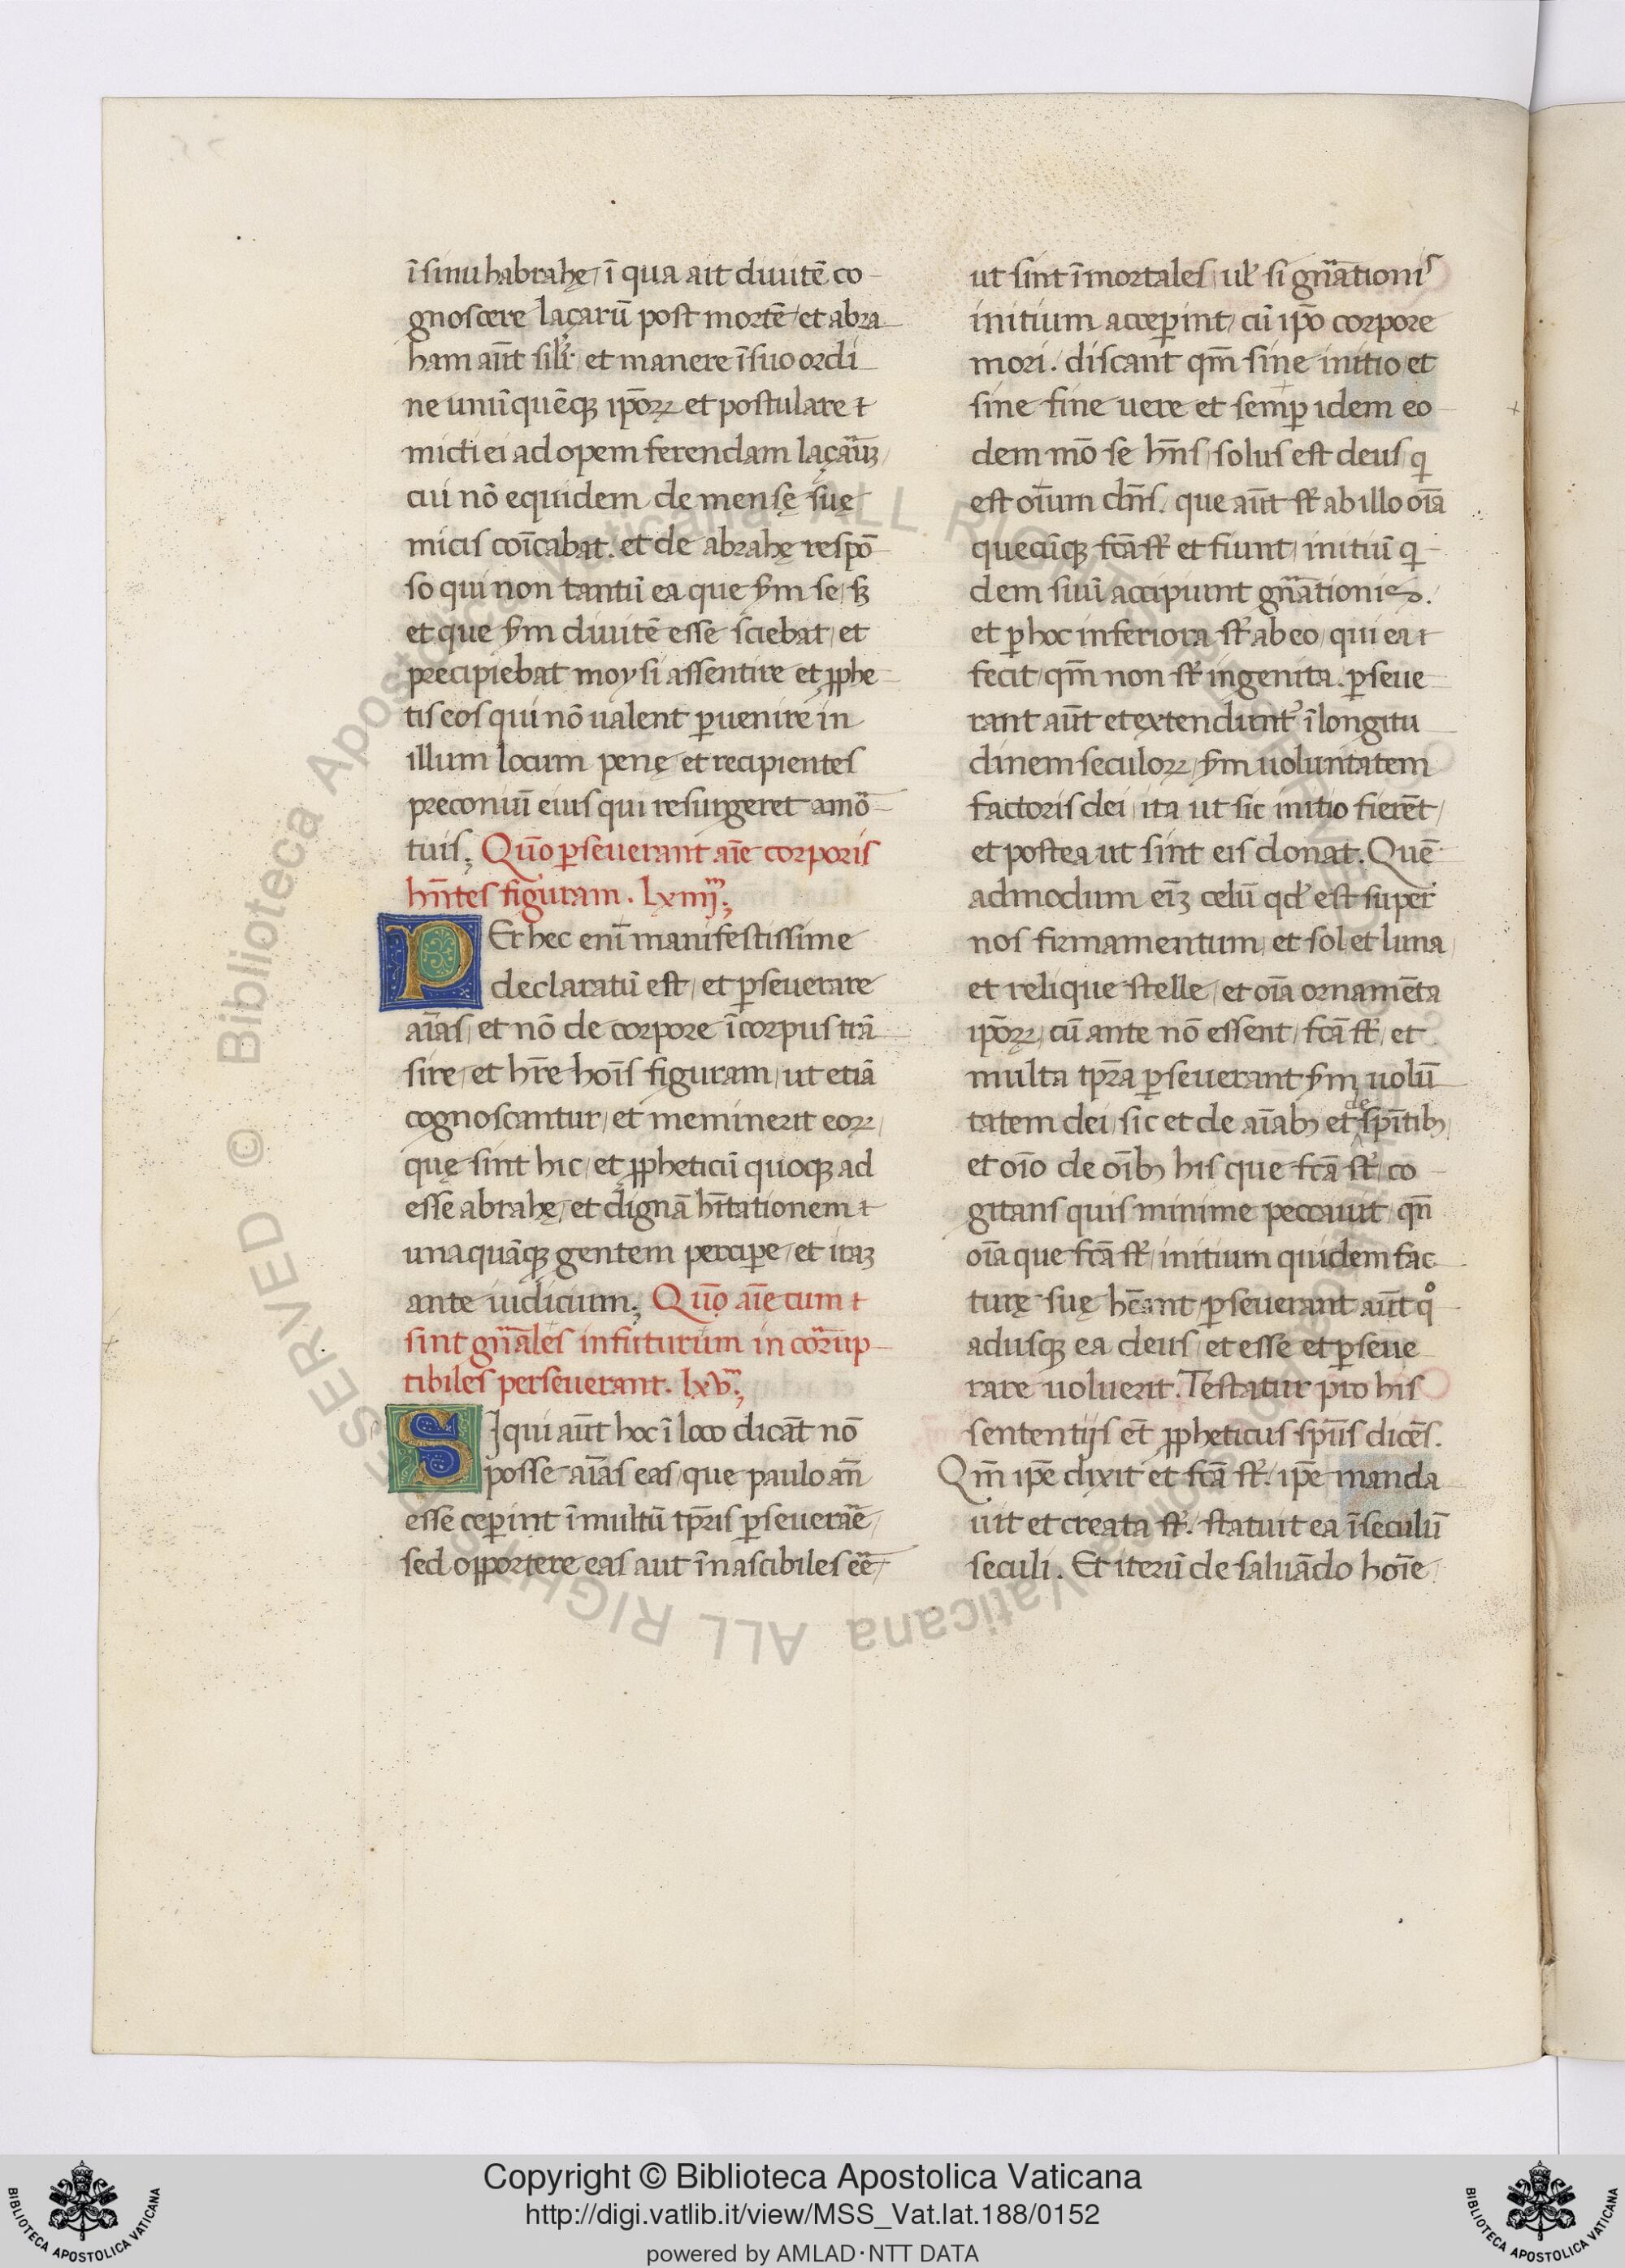 ī sinu habrahę, ī qua ait diuitē co-
gnoscere laçarū post mortē, et abra-
ham aūt silr̄. et manere ī suo ordi-
ne unū quēq; ip̄oꝝ et postulare
micti ei ad opem ferendam laçaū
cui nō equidem de mensę suę
micis coīcabat. et de abrahę respō-
so qui non tantū ea que s̄m se, sꝫ
et que s̄m diuitē esse sciebat, et
precipiebat moysi assentire et ꝓphe-
tis eos qui nō ualent ꝑuenire in
illum locum penę, et recipientes
preconiuī eius qui resurgeret a mo-
tuis; Quō ꝑseuerant aīe corporis
hn̄tes figuram. lxiiij;
PEr hec enī manifestissime
declaratū est, et ꝑseuerare
aīas, et nō de corpore ī corpus trā-
sire, et hr̄e hoīs figuram, ut etiā
cognoscantur, et meminerit eoꝝ,
quę sint hic, et ꝓpheticū quoq; ad
esse abrahę, et dignā hītationem
unaquāq; gentem perciꝑe, et itaꝫ
ante iudicium; Quō aīe cum
sint gn̄ales in futurum in corrup-
tibiles perseuerant. lxv;
SI qui aūt hoc ī loco dicāt nō
posse aīas eas, que paulo an̄
esse ceꝑint ī multū tp̄ris ꝑseuerāe,
sed opportere eas aut īnascibiles eē,
ut sint īmortales, ul̄ si gn̄ationis
initium acceꝑint, cū ip̄o corpore
mori. discant qm̄ sine initio et
sine fine uere et semꝑ idem eo-
dem mō se hn̄s, solus est deus, q
est oīum dn̄s. que aūt st̄ ab illo oīa
quecūq; fcā st̄ et fiunt, initiū q-
dem suū accipiunt gn̄ationis.
et ꝑ hoc inferiora st̄ ab eo, qui ea
fecit, qm̄ non st̄ ingenita. ꝑseue-
rant aūt et extendunt̄ ī longitu-
dinem seculoꝝ, s̄m uoluntatem
factoris dei, ita ut sic initio fierēt,
et postea ut sint eis donat. Quē
admodum eīꝫ celū qd̄ est super
nos firmamentum, et sol et luna,
et relique stelle, et oīa ornamēta
ip̄oꝝ, cū ante nō essent, fcā st̄, et
multa tp̄ra ꝑseuerant s̄m uolū-
tatem dei, sic et de aīab; et de sp̄itib;
et oīo de oīb; his que fcā st̄, co-
gitans quis minime peccauit, qn̄
oīa que fcā st̄, initium quidem fac-
turę suę hēant, ꝑseuerant aūt qͦ
adusq; ea deus, et esse et ꝑseue-
rare uoluerit. Testatur pro his
sententijs et̄ ꝓpheticus sp̄us dicēs.
Qm̄ ip̄e dixit et fcā st̄. ip̄e manda-
uit et creata st̄. statuit ea ī seculū
seculi. Et iterū de saluādo hoīe.
Copyright © Biblioteca Apostolica Vaticana
http://digi.vatlib.it/view/MSS_Vat.lat.188/0152
powered by AMLAD·NTT DATA